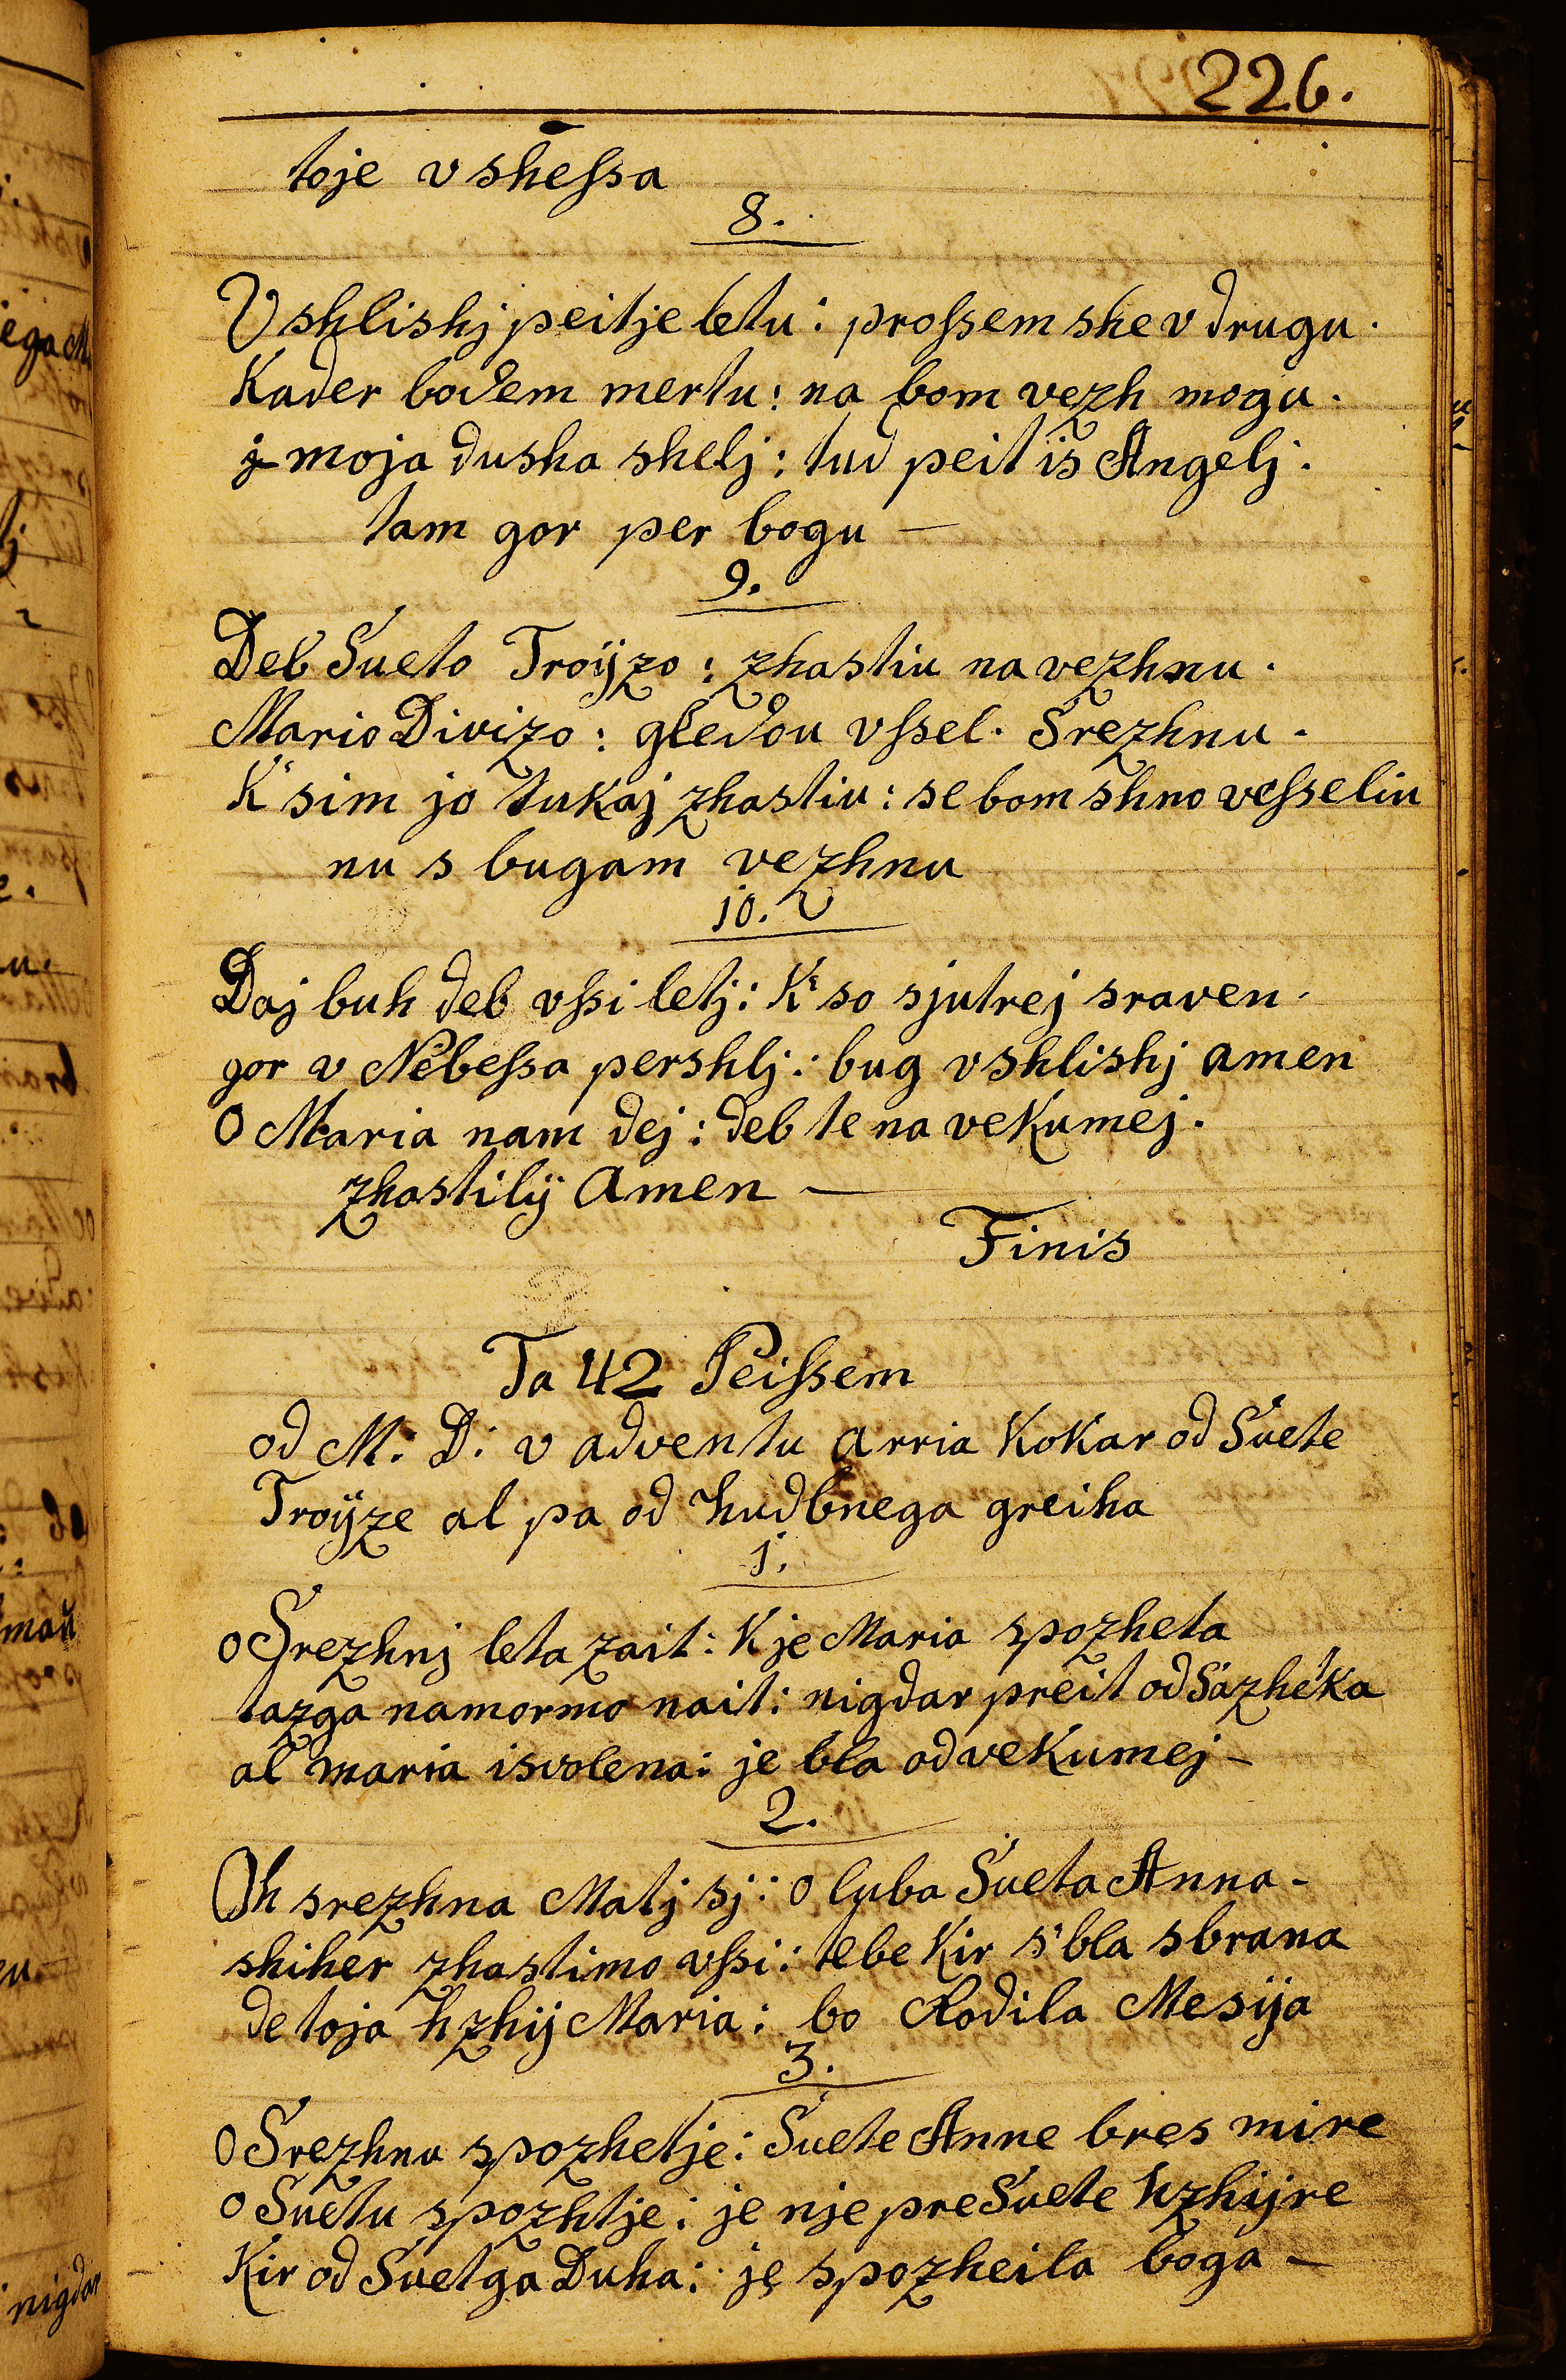 226.
toje v shessa
8.
Vshlishj peitje letu : prossem ske v drugu .
Kader bodem mertu : na bom vezh mogu .
j moja dusha shelj : tud peit is Angelj .
tam gor per bogu —
9.
Deb Sueto Troÿzo : zhastiu na vezhnu .
Mario Divizo : gledou vssel . Srezhnu .
K' sim jo tukaj zhastiu : se bom shno vesseliu
nu s bugam vezhnu
10.
Daj buh deb vssi letj : K' so sjutrej sraven .
gor v Nebessa pershlj : bug vshlishj amen
O Maria nam dej : deb te na vekumej .
zhastilÿ Amen —
Finis
Ta 42 Peissem
od M. D: v adventu arria Kokar od Suete
Troÿze al pa od hudbnega greiha
1.
o Srezhnj leta zait : K je Maria spozheta
tazga namormo nait : nigdar preit od Sazheka
al maria isvolena : je bla od vekumej —
2.
Oh srezhna Matj sj : o luba Sueta Anna -
skiher zhastimo vssi : tebe Kir s' bla sbrana
de toja hzhÿ Maria : bo Rodila Mesija
3.
O Srezhnu spozhetje : Suete Anne bres mire
o Suetu spozhtje : je nje preSuete hzhÿre
Kir od Suetga Duha : je spozheila boga —
ega M
mau
nigdar